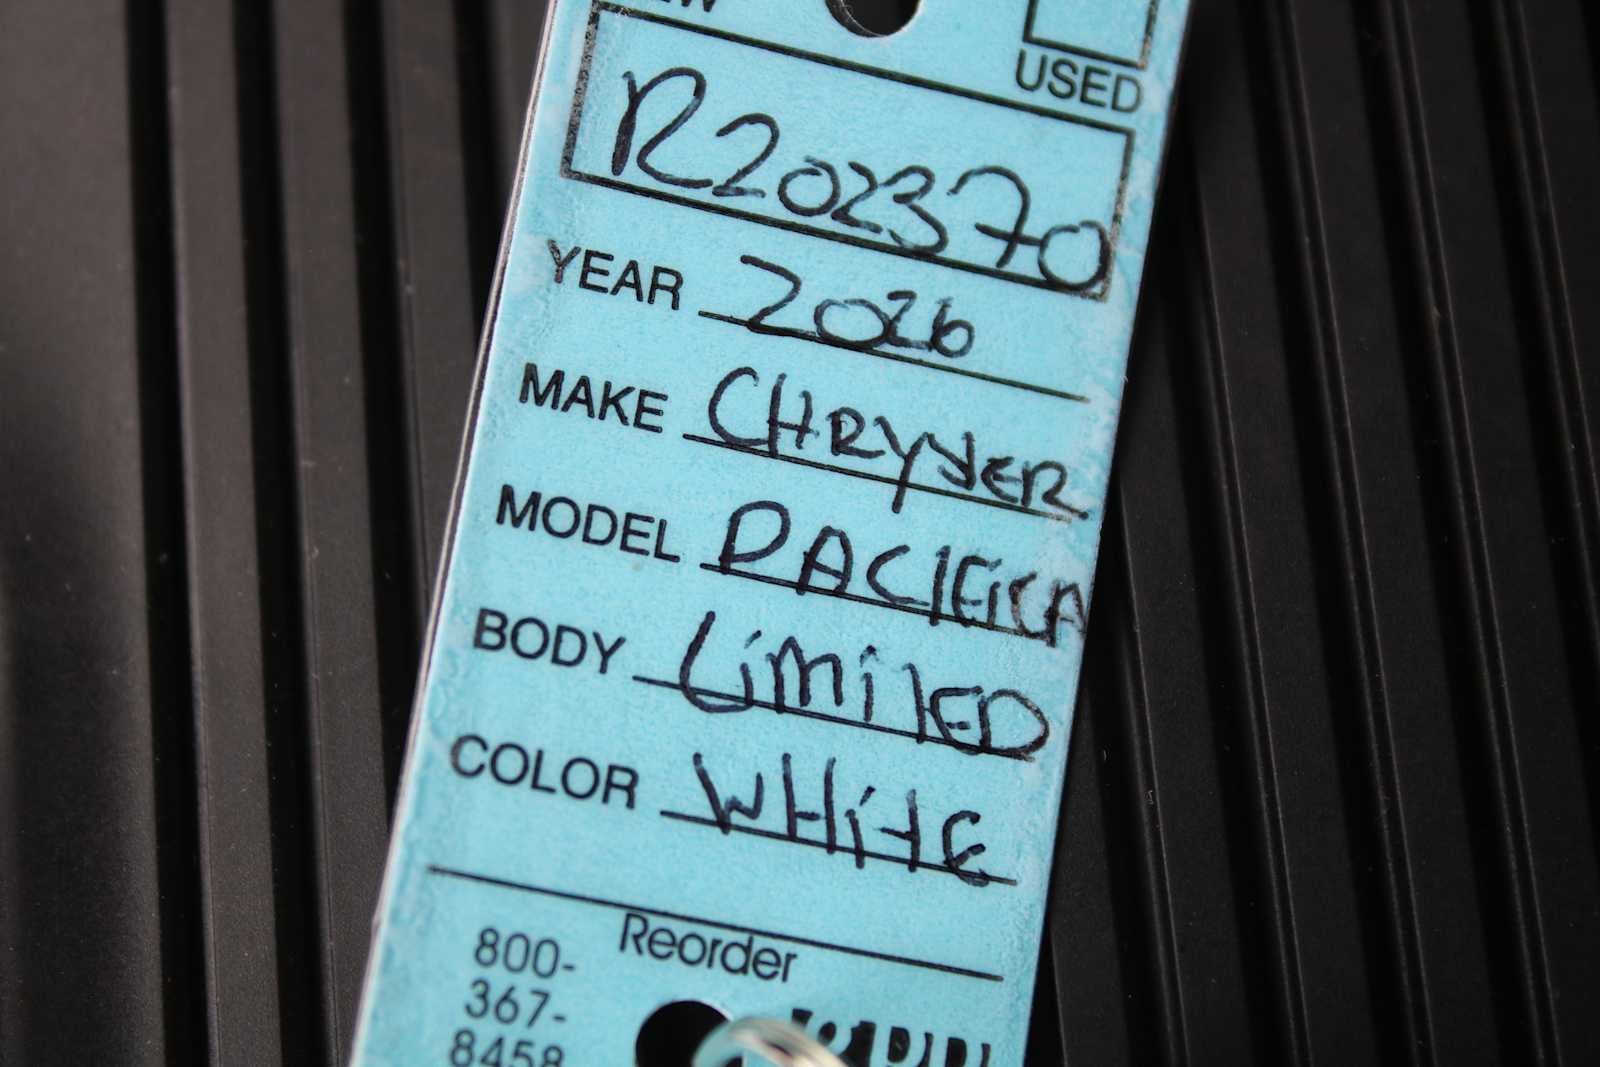 USED
R202370
YEAR 2026
MAKE CHRYSLER
MODEL PACIFICA
BODY LIMITED
COLOR WHITE
Reorder
800-
367-
8458